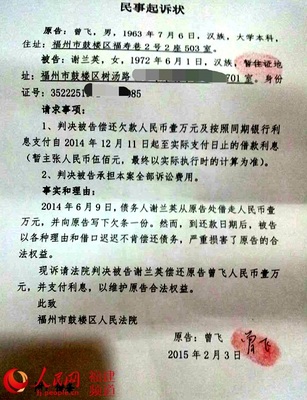 民事起诉状
原告：曾飞，男，1963年7月6日，汉族，大学本科，
住址：福州市鼓楼区福寿巷2号2座503室。
被告：谢兰英，女，1972年6月1日，汉族，暂住证地
址：福州市鼓楼区树汤路 701室。身份
证号：3522251 85
请求事项：
1、判决被告偿还欠款人民币壹万元及按照同期银行利
息支付自2014年12月11日起至实际支付日止的借款利息
（暂主张人民币伍佰元，最终以实际执行时的计算为准）。
2、判决被告承担本案全部诉讼费用。
事实和理由：
2014年6月9日，债务人谢兰英从原告处借走人民币壹
万元，并向原告写下欠条一份。然而，到还款日期后，被告
以各种理由和借口迟迟不肯偿还债务，严重损害了原告的合
法权益。
现诉请法院判决被告谢兰英偿还原告曾飞人民币壹万
元，并支付利息，以维护原告合法权益。
此致
福州市鼓楼区人民法院
原告：曾飞 曾飞
2015年2月3日
人民网 福建频道
fj.people.com.cn